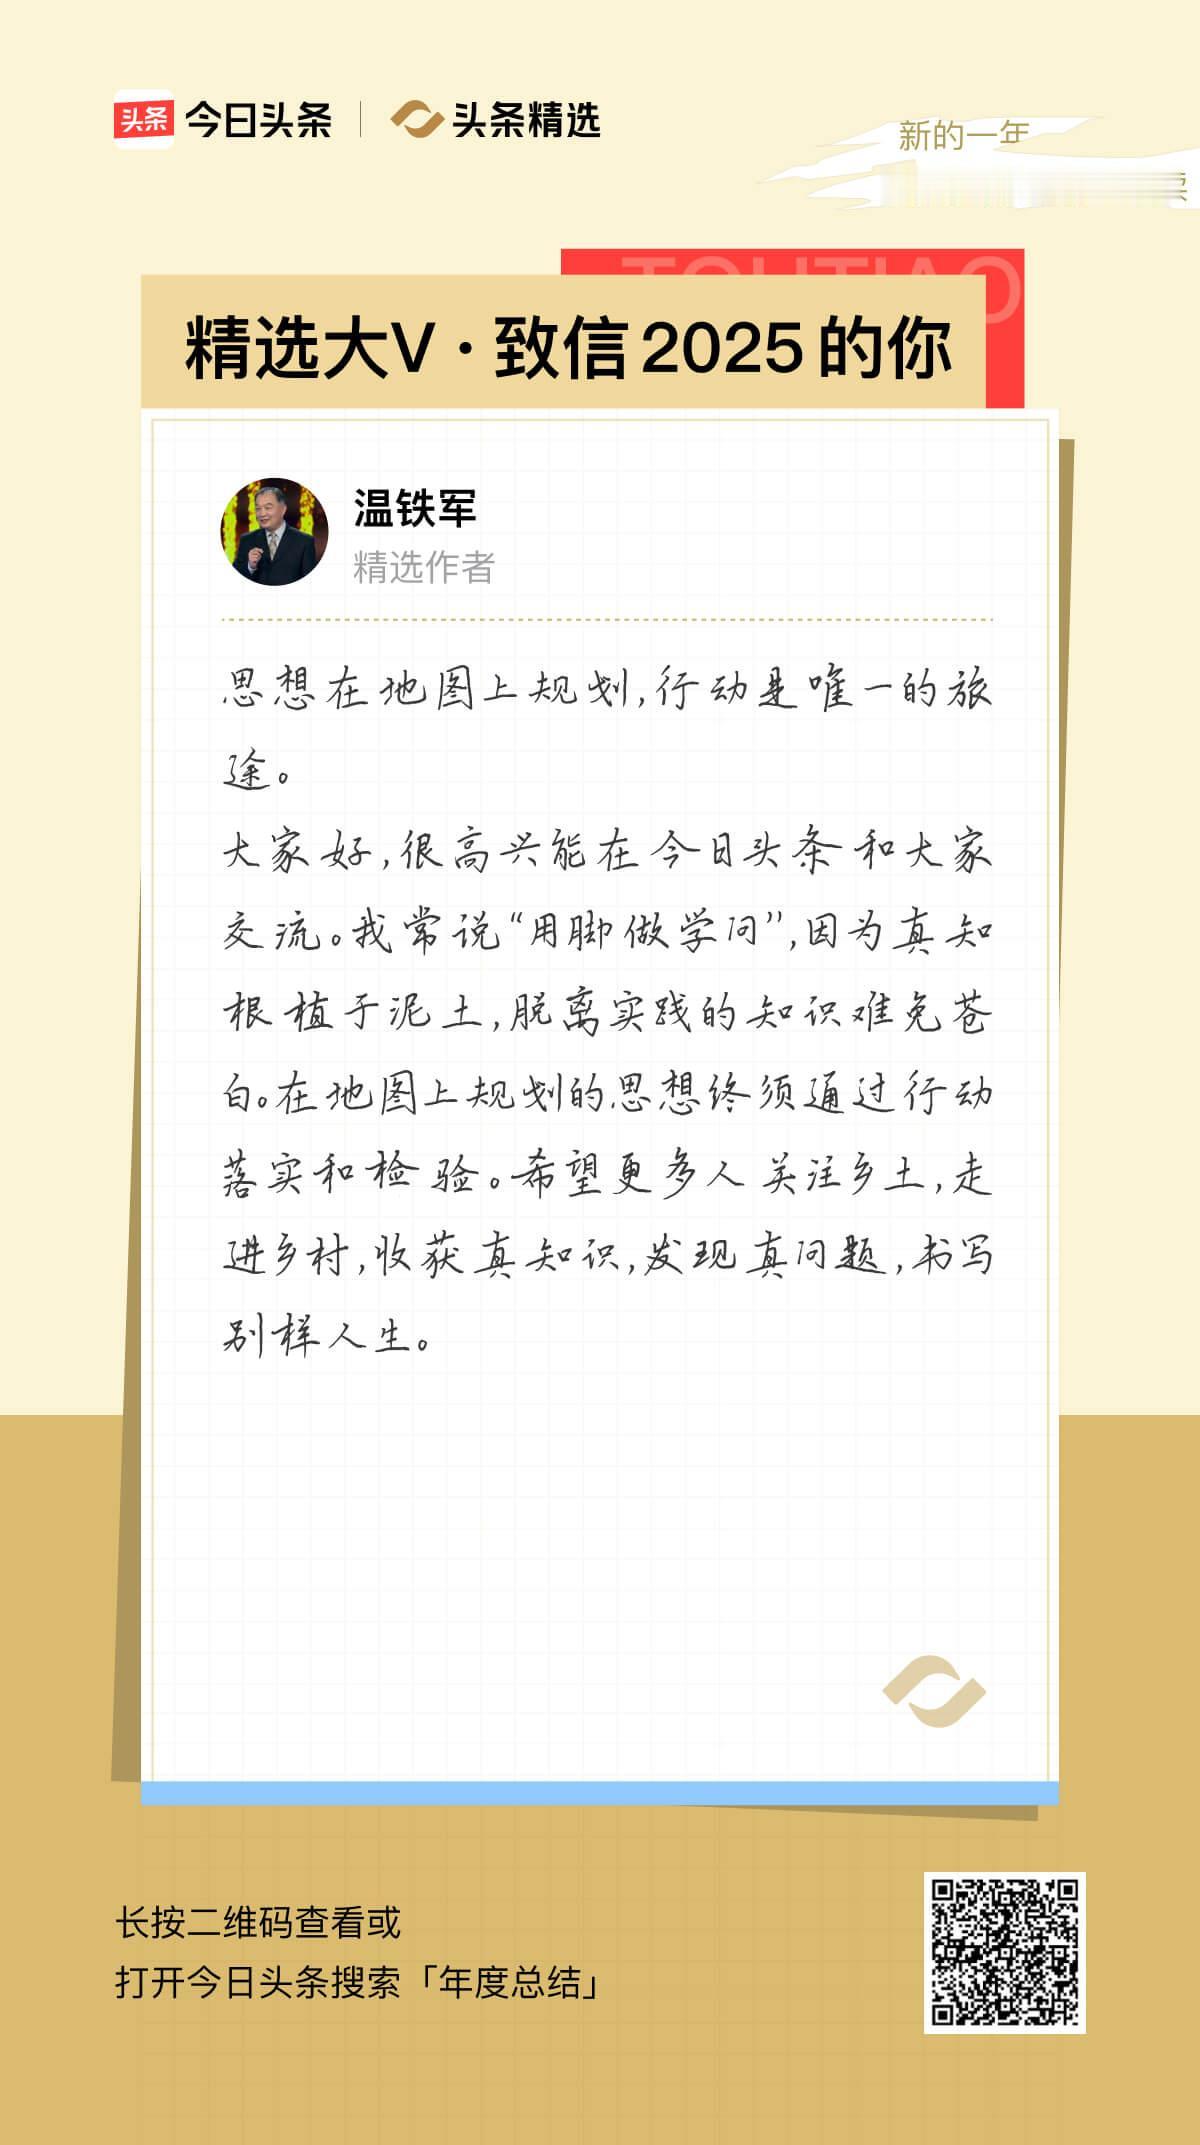 头条 今日头条 头条精选
新的一年
TOUTIAO
精选大V·致信2025的你
温铁军
精选作者
思想在地图上规划,行动是唯一的旅
途。
大家好,很高兴能在今日头条和大家
交流。我常说“用脚做学问”,因为真知
根植于泥土,脱离实践的知识难免苍
白。在地图上规划的思想终须通过行动
落实和检验。希望更多人关注乡土,走
进乡村,收获真知识,发现真问题,书写
别样人生。
长按二维码查看或
打开今日头条搜索「年度总结」